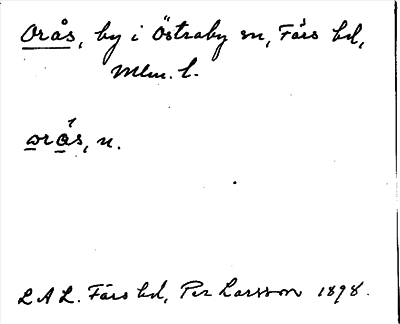 Orås, by i Östraby sn, Färs hd,
Mlm. l.
orås, n.
L A L. Färs hd, Per Larsson 1898.